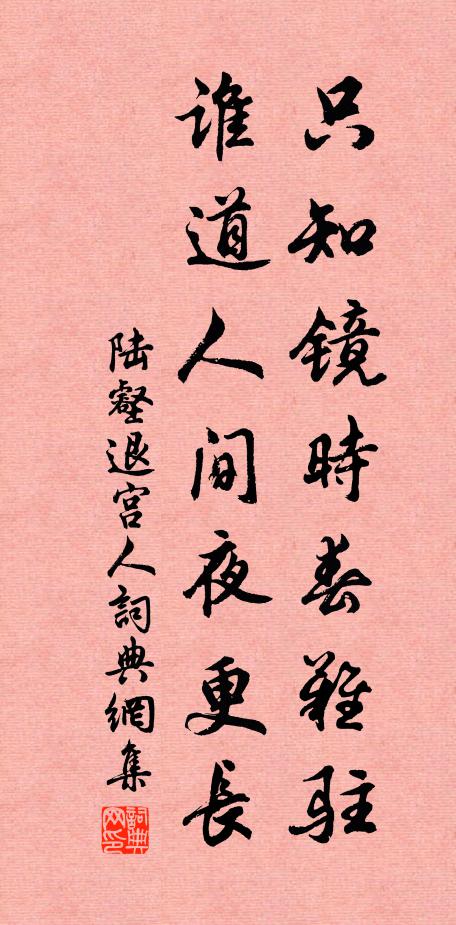 只知镜時春難驻
谁道人间夜更長
陆壑退宫人詞典網集
詞典网印